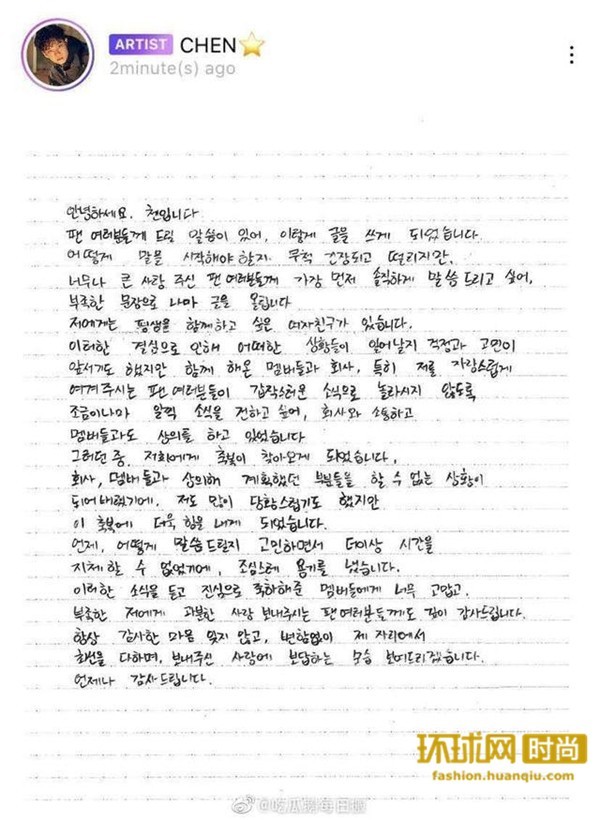 ARTIST CHEN⭐
2minute(s) ago
안녕하세요. 첸입니다
팬 여러분들께 드릴 말씀이 있어, 이렇게 글을 쓰게 되었습니다.
어떻게 말을 시작해야 할지 무척 긴장되고 떨리지만,
너무나 큰 사랑 주신 팬 여러분들께 가장 먼저 솔직하게 말씀드리고 싶어,
부족한 문장으로 나마 글을 올립니다
저에게는 평생을 함께하고 싶은 여자친구가 있습니다.
이러한 결심으로 인해 어떠한 상황들이 일어날지 걱정과 고민이
앞서기도 했지만 함께 해온 멤버들과 회사, 특히 저를 자랑스럽게
여겨주시는 팬 여러분들이 갑작스러운 소식으로 놀라시지 않도록
조금이나마 일찍 소식을 전하고 싶어, 회사와 소통하고
멤버들과도 상의를 하고 있었습니다
그러던 중, 저희에게 축복이 찾아오게 되었습니다.
회사, 멤버들과 상의해 계획했던 부분들을 할 수 없는 상황이
되어버렸기에, 저도 많이 당황스럽기도 했지만
이 축복에 더욱 힘을 내게 되었습니다.
언제, 어떻게 말씀드릴지 고민하면서 더이상 시간을
지체할 수 없었기에, 조심스레 용기를 냈습니다.
이러한 소식을 듣고 진심으로 축하해준 멤버들에게 너무 고맙고,
부족한 저에게 과분한 사랑 보내주시는 팬 여러분들께도 깊이 감사드립니다.
항상 감사한 마음 잊지 않고, 변함없이 제 자리에서
최선을 다하며, 보내주신 사랑에 보답하는 모습 보여드리겠습니다.
언제나 감사드립니다.
环球网 时尚
fashion.huanqiu.com